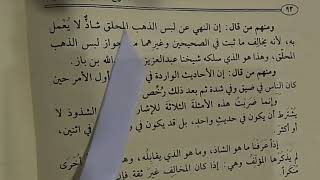 ٩٣
ومنهم من قال: إن النهي عن لبس الذهب المحلق شاذٌّ لا يُعْمل
به، لأنه يخالف ما ثبت في الصحيحين وغيرهما من جواز لبس الذهب
المحلّق، وهذا هو الذي سلكه شيخنا عبدالعزيز الله بن باز.
ومنهم من قال: إن الأحاديث الواردة في أول الأمر حين
كان الناس في ضيق وفي شدة ثم بعد ذلك رُخِّص
وإنما ضَرَبتُ هذه الأمثلة الثلاثة للإشارة الشذوذ لا
يُشْترط أن يكون في حديث واحدٍ، بل قد يكون في اثنين،
أو أكثر.
إذاً عَرَفنا ما هو الشاذ، وما هو الذي يقابلُه، وه أُخْرَى
لم يذكرها المؤلف وهي: إذا كان المخالف غير ثقة فإن
مُنكراً.